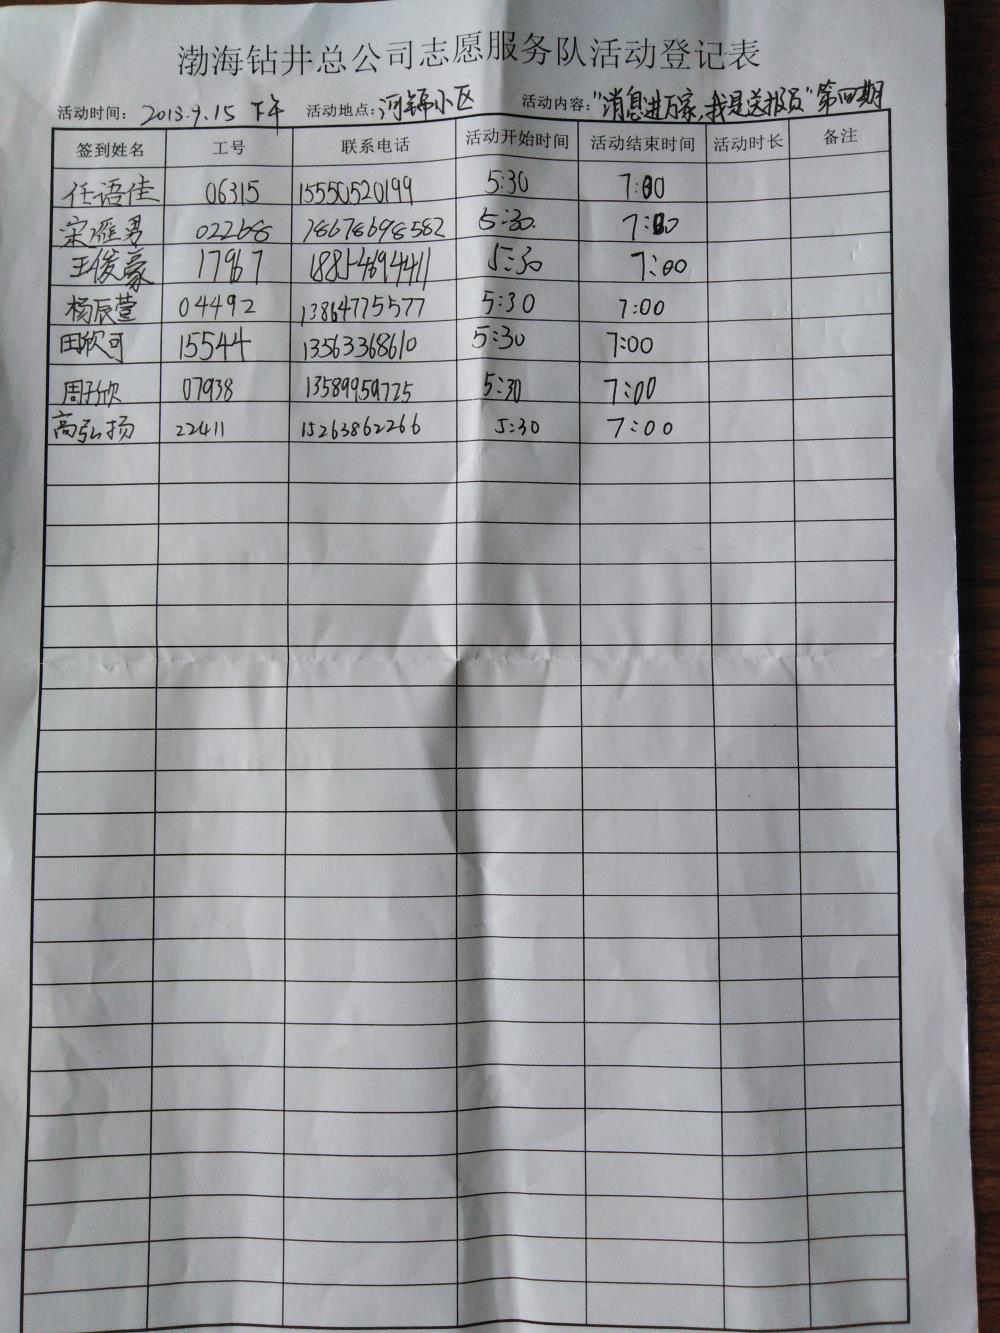 渤海钻井总公司志愿服务队活动登记表
活动时间：2013.9.15 下午 活动地点：河锦小区 活动内容："消息进万家，我是送报员"第四期
签到姓名 工号 联系电话 活动开始时间 活动结束时间 活动时长 备注
任语佳 06315 15550520199 5:30 7:00
宋雁男 02268 78678698582 5:30 7:00
王俊豪 17967 18854694411 5:30 7:00
杨辰萱 04492 13864775577 5:30 7:00
田欣可 15544 13563368610 5:30 7:00
周子欣 07938 13589959725 5:30 7:00
高弘扬 22411 15263862266 5:30 7:00